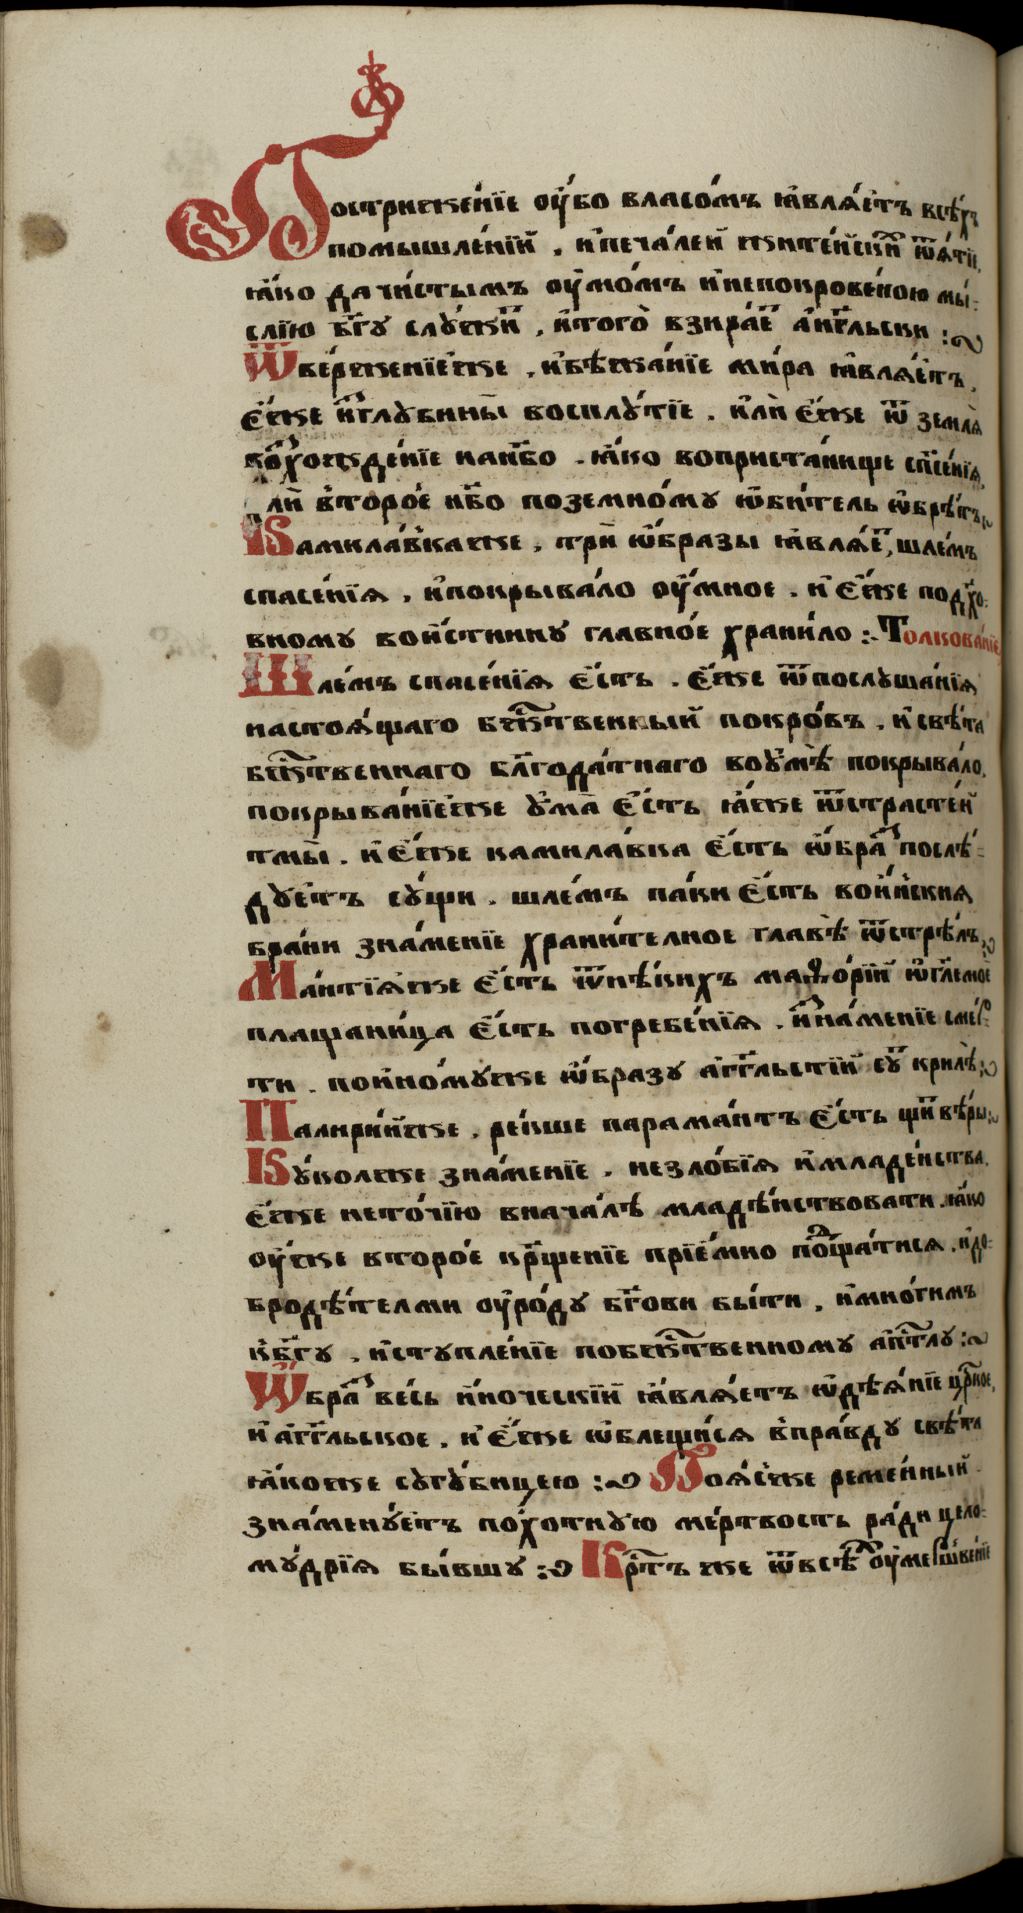 Постриже́нїе ᲂу҆́бо власо́мъ ꙗ҆влѧ́етъ всѣ́хъ
помышле́нїй . и҆печа́лей жите́йскиⷯ ѿѧ́тїе,
ꙗ҆́ко да чи́стымъ ᲂу҆мо́мъ и҆непокрове́ною мы́-
слїю бг҃у слꙋ́житⷮ , и҆того̀ взира́еⷮ а҆́гг҃льски :
Ѿве́рженїеже , и҆бѣжа́нїе ми́ра ꙗ҆влѧ́етъ ,
є҆́же и҆зⷥглꙋбины̀ воспл́ꙋтїе . и҆лѝ є҆́же ѿ землѧ̀
восхожде́нїе нан҃бо . ꙗ҆́ко вопристанище сп҃се́нїѧ,
ли̑ в҆торо́е нб҃о поземно́мꙋ ѡ҆би́тель ѡ҆брѣ́тъ
Камила́в҆каже , трѝ ѡ҆́бразы ꙗ҆влѧ́еⷮ, шле́мъ
спасе́нїѧ , и҆покрыва́ло ᲂу҆́мное . и҆ є҆́же подꙋхо-
вномꙋ вои́нстникꙋ главно́е храни́ло : Толкова́нїе
Шле́мъ спасе́нїѧ є҆́сть . є҆́же ѿпослꙋша́нїѧ
настоѧ́щаго бж҃твенный покро́въ . и҆ свѣ́та
бж҃твеннаго бл҃года́тнаго воᲂу҆мѣ̀ покрыва́ло,
покрыва́нїеже ᲂу҆ма̀ є҆́сть ꙗ҆́же ѿстрасте́й
тмы̀ . и҆ є҆́же камила́вка є҆́сть ѡ҆́браⷥ послѣ́-
дꙋетъ сꙋ́щи . шле́мъ паки є҆́сть вои́нскиѧ
бра́ни зна́менїе храни́телное главѣ̀ ѿстрѣ́лъ
Ма́нтїѧже є҆́сть ѿнѣ́кихъ маѳо́рїй ѡ҆гл҃емое
плащани́ца є҆́сть погребе́нїѧ . и҆зⷥна́менїе сме́р-
ти . поино́мꙋже ѡ҆́бразꙋ а҆́гг҃льстїй сꙋⷮ крилѣ̀
Палири́йже , ре́кше парама́нтъ є҆́сть щиⷮ вѣ́ры
Кꙋ́кольже зна́менїе . незло́бїѧ и҆младе́нства ,
є҆́же нето́чїю внача́лѣ младѣ́нствовати . ꙗ҆́ко
ᲂу҆́же второ́е кр҃ще́нїе прїе́мно поⷣща́тисѧ . и҆до-
бродѣ́телми ᲂу҆ро́дꙋ бг҃ови бы́ти , и҆мно́гимъ
к҆бг҃ꙋ , и҆стꙋпле́нїе побж҃твенномꙋ а҆пⷭ҇лꙋ :
Ѡ҆́браⷥ весь и҆́ноческїй ꙗ҆влѧ́етъ ѡ҆дѣѧ́нїе цр҃ное,
и҆ а҆́гг҃льское . и҆ є҆́же ѡ҆блещи́сѧ в҆пра́вдꙋ свѣ́тл
ꙗ҆́коже сꙋгꙋ́бицею : Поѧ́с҆же реме́нный
зна́менꙋетъ по́хотнꙋю ме́ртвость ра́ди цело-
мꙋ́дрїѧ бы́вшꙋ : Крⷭ҇тъ же ѿвсѣⷯ ᲂу҆ме́рщвенїе